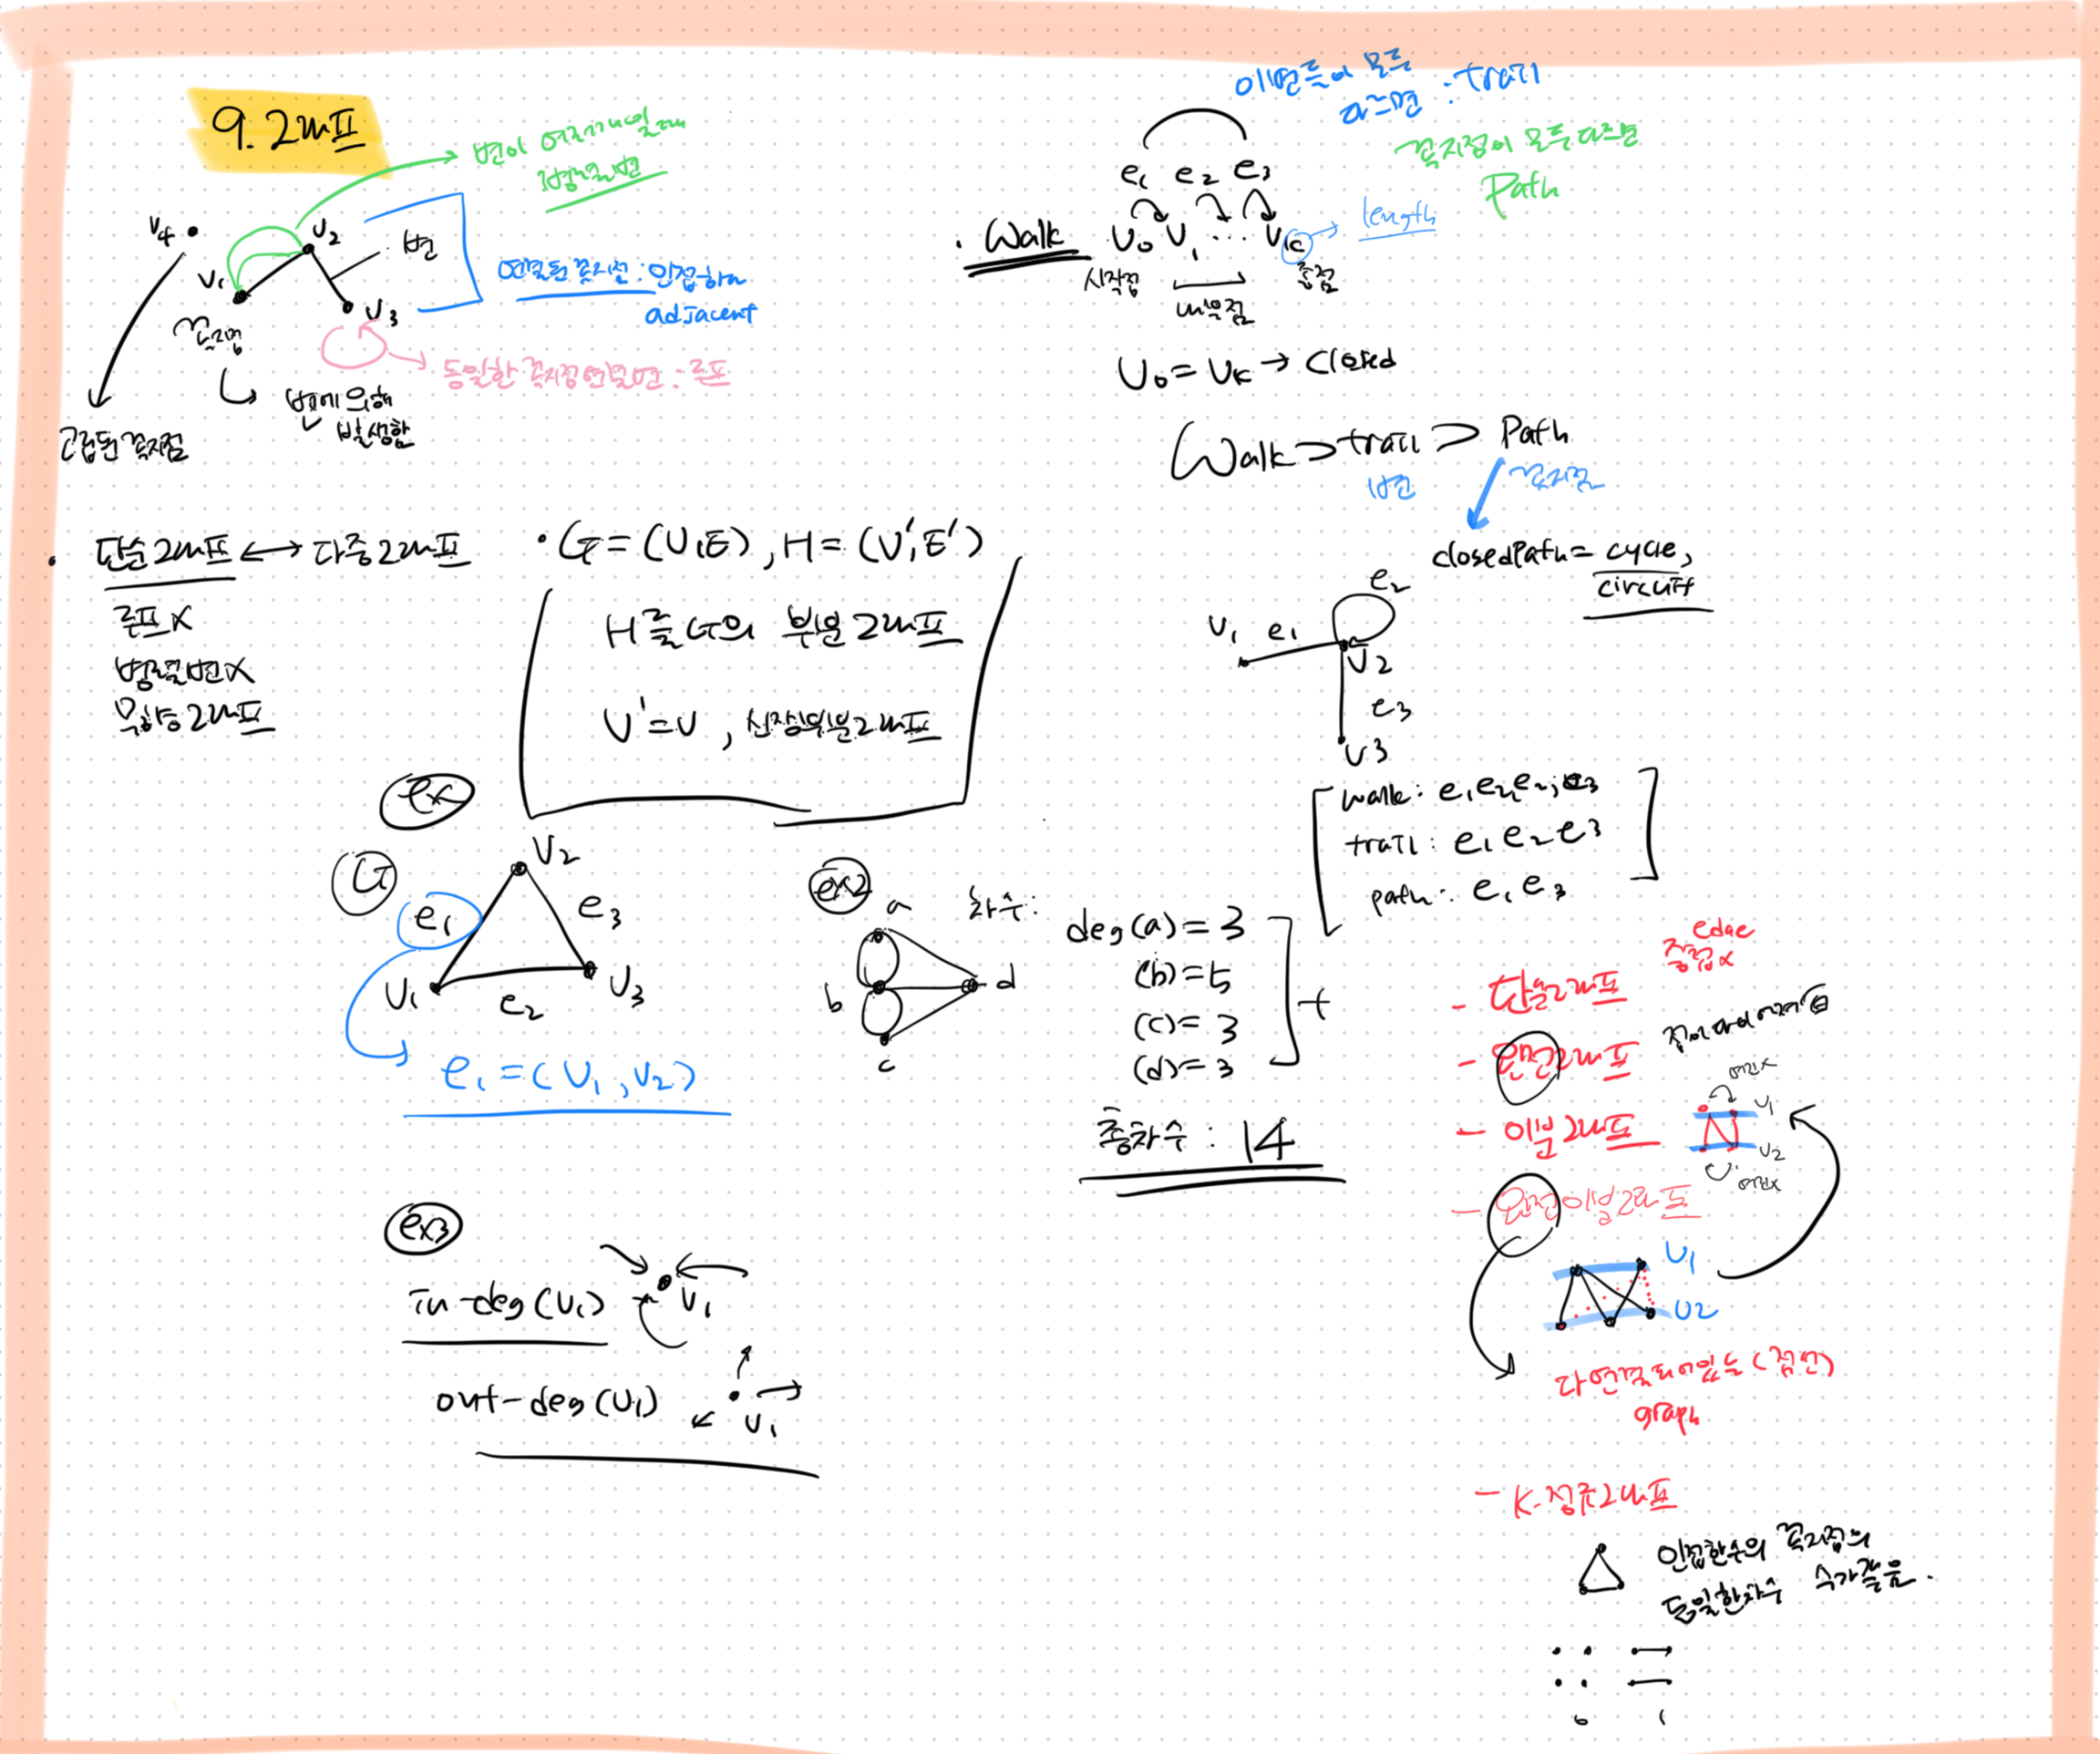 9. 그래프
변이 여러개일때
병렬변
v4
v2
v1
v3
변
연결된 꼭지점 : 인접하다
adjacent
꼭지점
동일한 꼭지점 연결변 : 루프
변에 의해
발생함
고립된 꼭지점
· 단순그래프 ↔ 다중그래프
루프 X
병렬변 X
무향그래프
· G = (V, E), H = (V', E')
H를 G의 부분그래프
V' = V, 신장부분그래프
ex
G
v2
e1
e3
v1
e2
v3
e1 = (v1, v2)
ex2
a
b
c
d
차수 :
deg(a) = 3
(b) = 5
(c) = 3
(d) = 3
+
총차수 : 14
ex3
in-deg(v1)
v1
out-deg(v1)
v1
이 변들이 모두
다르면 : trail
꼭지점이 모두 다르면
Path
e1 e2 e3
· Walk
v0 v1 ... vk
length
시작점
내부점
종점
v0 = vk → closed
Walk ⊃ trail ⊃ Path
변
꼭지점
closed Path = cycle,
circuit
e2
v1
e1
v2
e3
v3
walk : e1 e2 e2, e3
trail : e1 e2 e3
path : e1 e3
edge
중첩 x
- 단순그래프
- 완전그래프
- 이분그래프
v1
v2
- 완전이분그래프
v1
v2
다 연결되어있는 (점선)
graph
- K-정규그래프
인접한 수의 꼭지점의
동일한 차수 수가 같음.
0 1